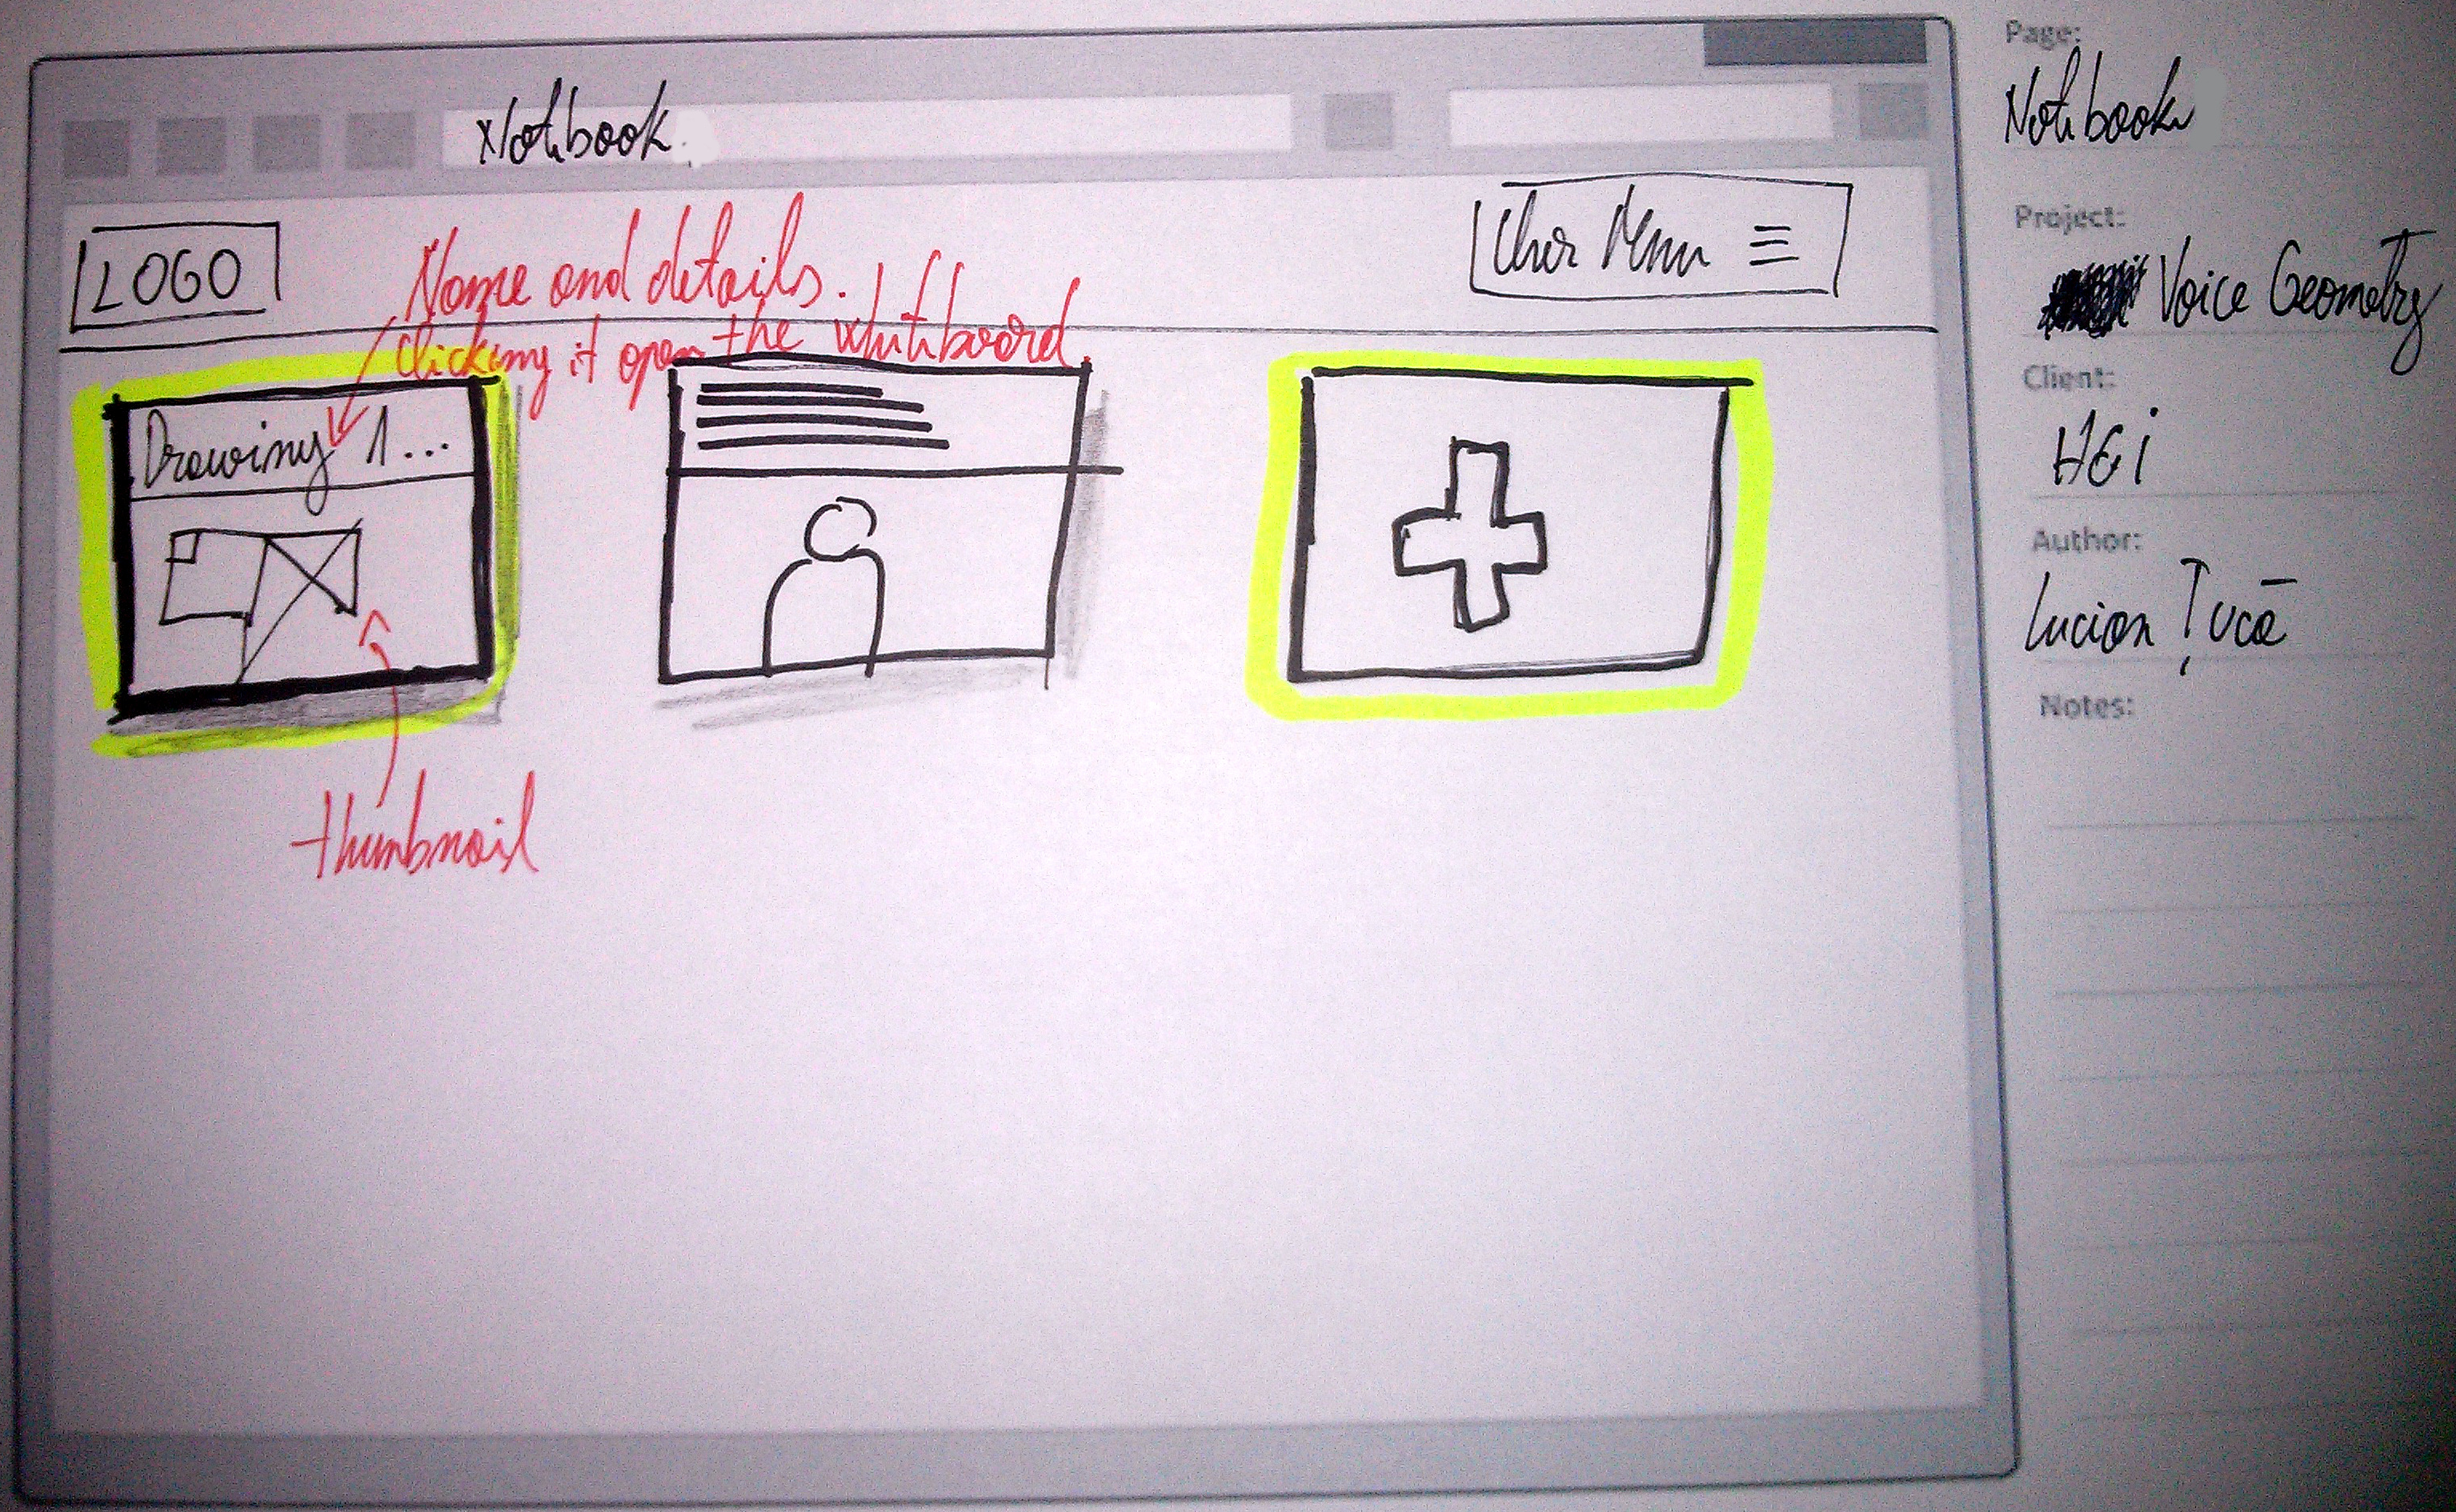 Notebook
LOGO
Name and details.
Clicking it open the whiteboard.
User Menu
Drawing 1...
thumbnail
Page:
Notebook
Project:
Voice Geometry
Client:
HCI
Author:
Lucian Țucă
Notes: